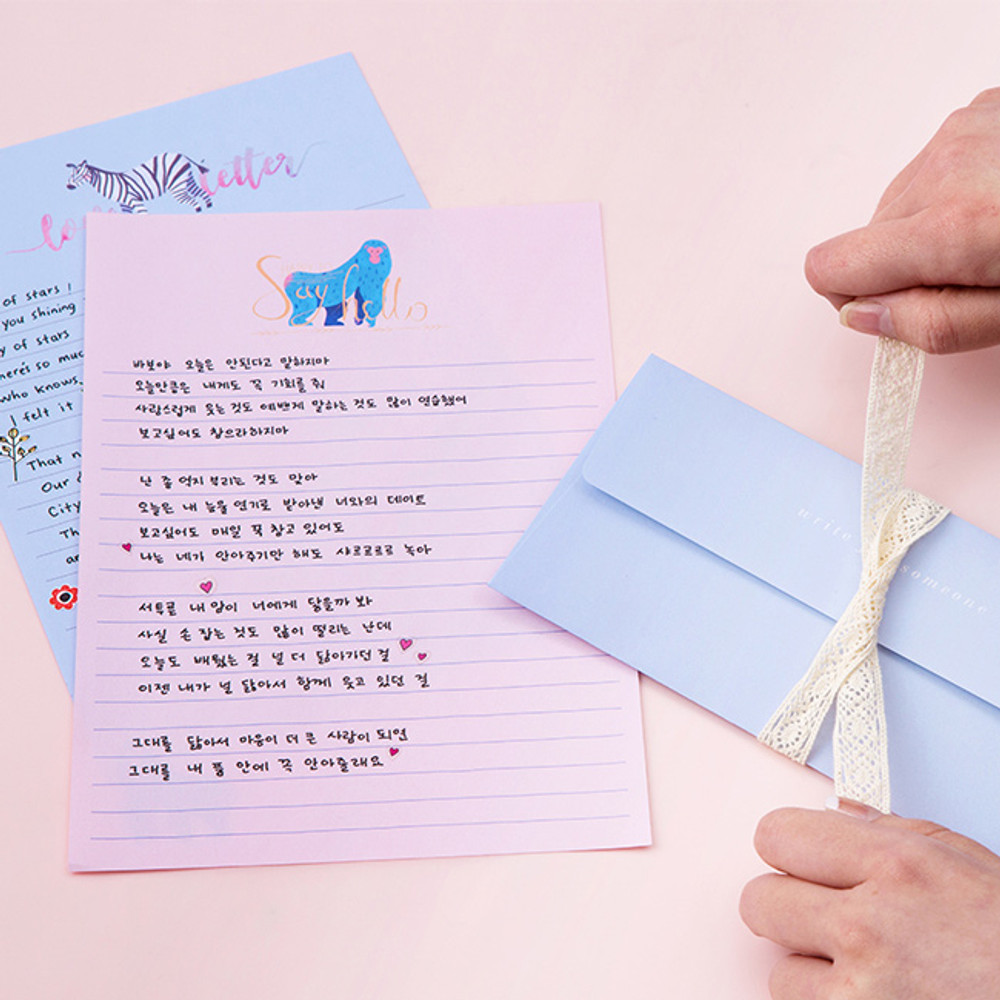 love letter
of stars !
you shining
y of stars
here's so muc
who knows,
I felt it
That n
Our
City
Th
an
Say hello
바보야 오늘은 안된다고 말하지마
오늘만큼은 내게도 꼭 기회를 줘
사랑스럽게 웃는것도 예쁘게 말하는 것도 많이 연습했어
보고싶어도 참으라하지마
난 좀 억지 부리는 것도 맞아
오늘은 내 눈물 연기로 받아낸 너와의 데이트
보고싶어도 매일 꾹 참고 있어도
나는 네가 안아주기만 해도 사르르르르 녹아
서투른 내 맘이 너에게 닿을까 봐
사실 손 잡는 것도 많이 떨리는 난데
오늘도 배웠는 걸 널 더 닮아가던 걸
이젠 내가 널 닮아서 함께 웃고 있던 걸
그대를 닮아서 마음이 더 큰 사람이 되면
그대를 내 품 안에 꼭 안아줄래요
write someone